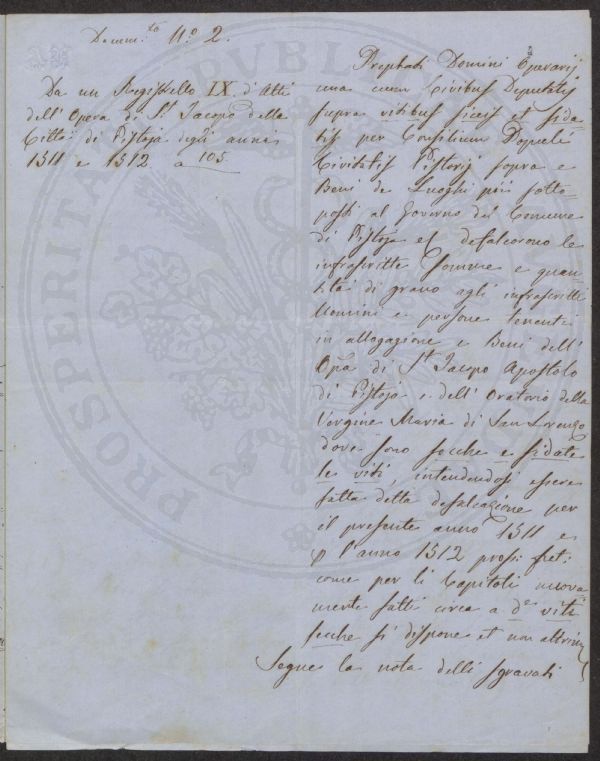 Docum.to N.o 2.
Da un Registrello IX. d'Atti
dell'Opera di S.t Jacopo della
Città di Pistoja degli anni
1511 e 1512 a 105.
Prephati Domini Operarij
una cum Civibus Deputatis
supra vitibus sicis et sida-
tis per Consilium Populi
Civitatis Pistorij sopra e
Beni de Luoghi pii sotto-
posti al Governo del Comune
di Pistoja et defalcorono le
infrascritte somme e quan-
tità di grano agli infrascritti
Uomini e persone tenenti
in allogazione e Beni dell'
Opa di S.t Jacopo Apostolo
di Pistoja e dell'Oratorio della
Vergine Maria di San Lorenzo
dove sono secche e sidate
le viti, intendendosi essere
fatta detta defalcazione per
il presente anno 1511 e
p l'anno 1512 pross: fut:
come per li Capitoli nuova-
mente fatti circa a d.e viti
secche si dispone et non altrim:
Segue la nota delli sgravati
PROSPERITAS PUBLICA